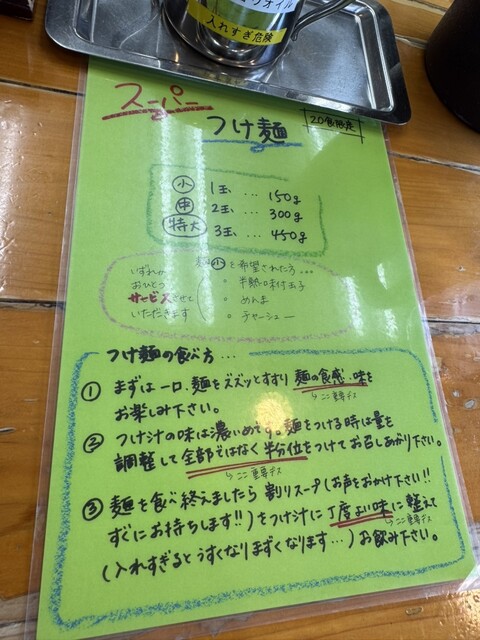 入れすぎ危険
スーパー
つけ麺
20食限定
小 1玉 … 150g
中 2玉 … 300g
特大 3玉 … 450g
小を希望された方…
いずれか
おひとつ
サービスさせて
いただきます
・半熟味付玉子
・めんま
・チャーシュー
つけ麺の食べ方…
① まずは一口、麺をズズッとすすり麺の食感、味を
↳ここ重要デス
お楽しみ下さい。
② つけ汁の味は濃いめです。麺をつける時は量を
調整して全部ではなく半分位をつけてお召しあがり下さい。
↳ここ重要デス
③ 麺を食べ終えましたら割りスープ(お声をおかけ下さい!!
すぐにお持ちします!!)をつけ汁に丁度よい味に整えて
↳ここ重要デス
(入れすぎるとうすくなりまずくなります…)お飲み下さい。